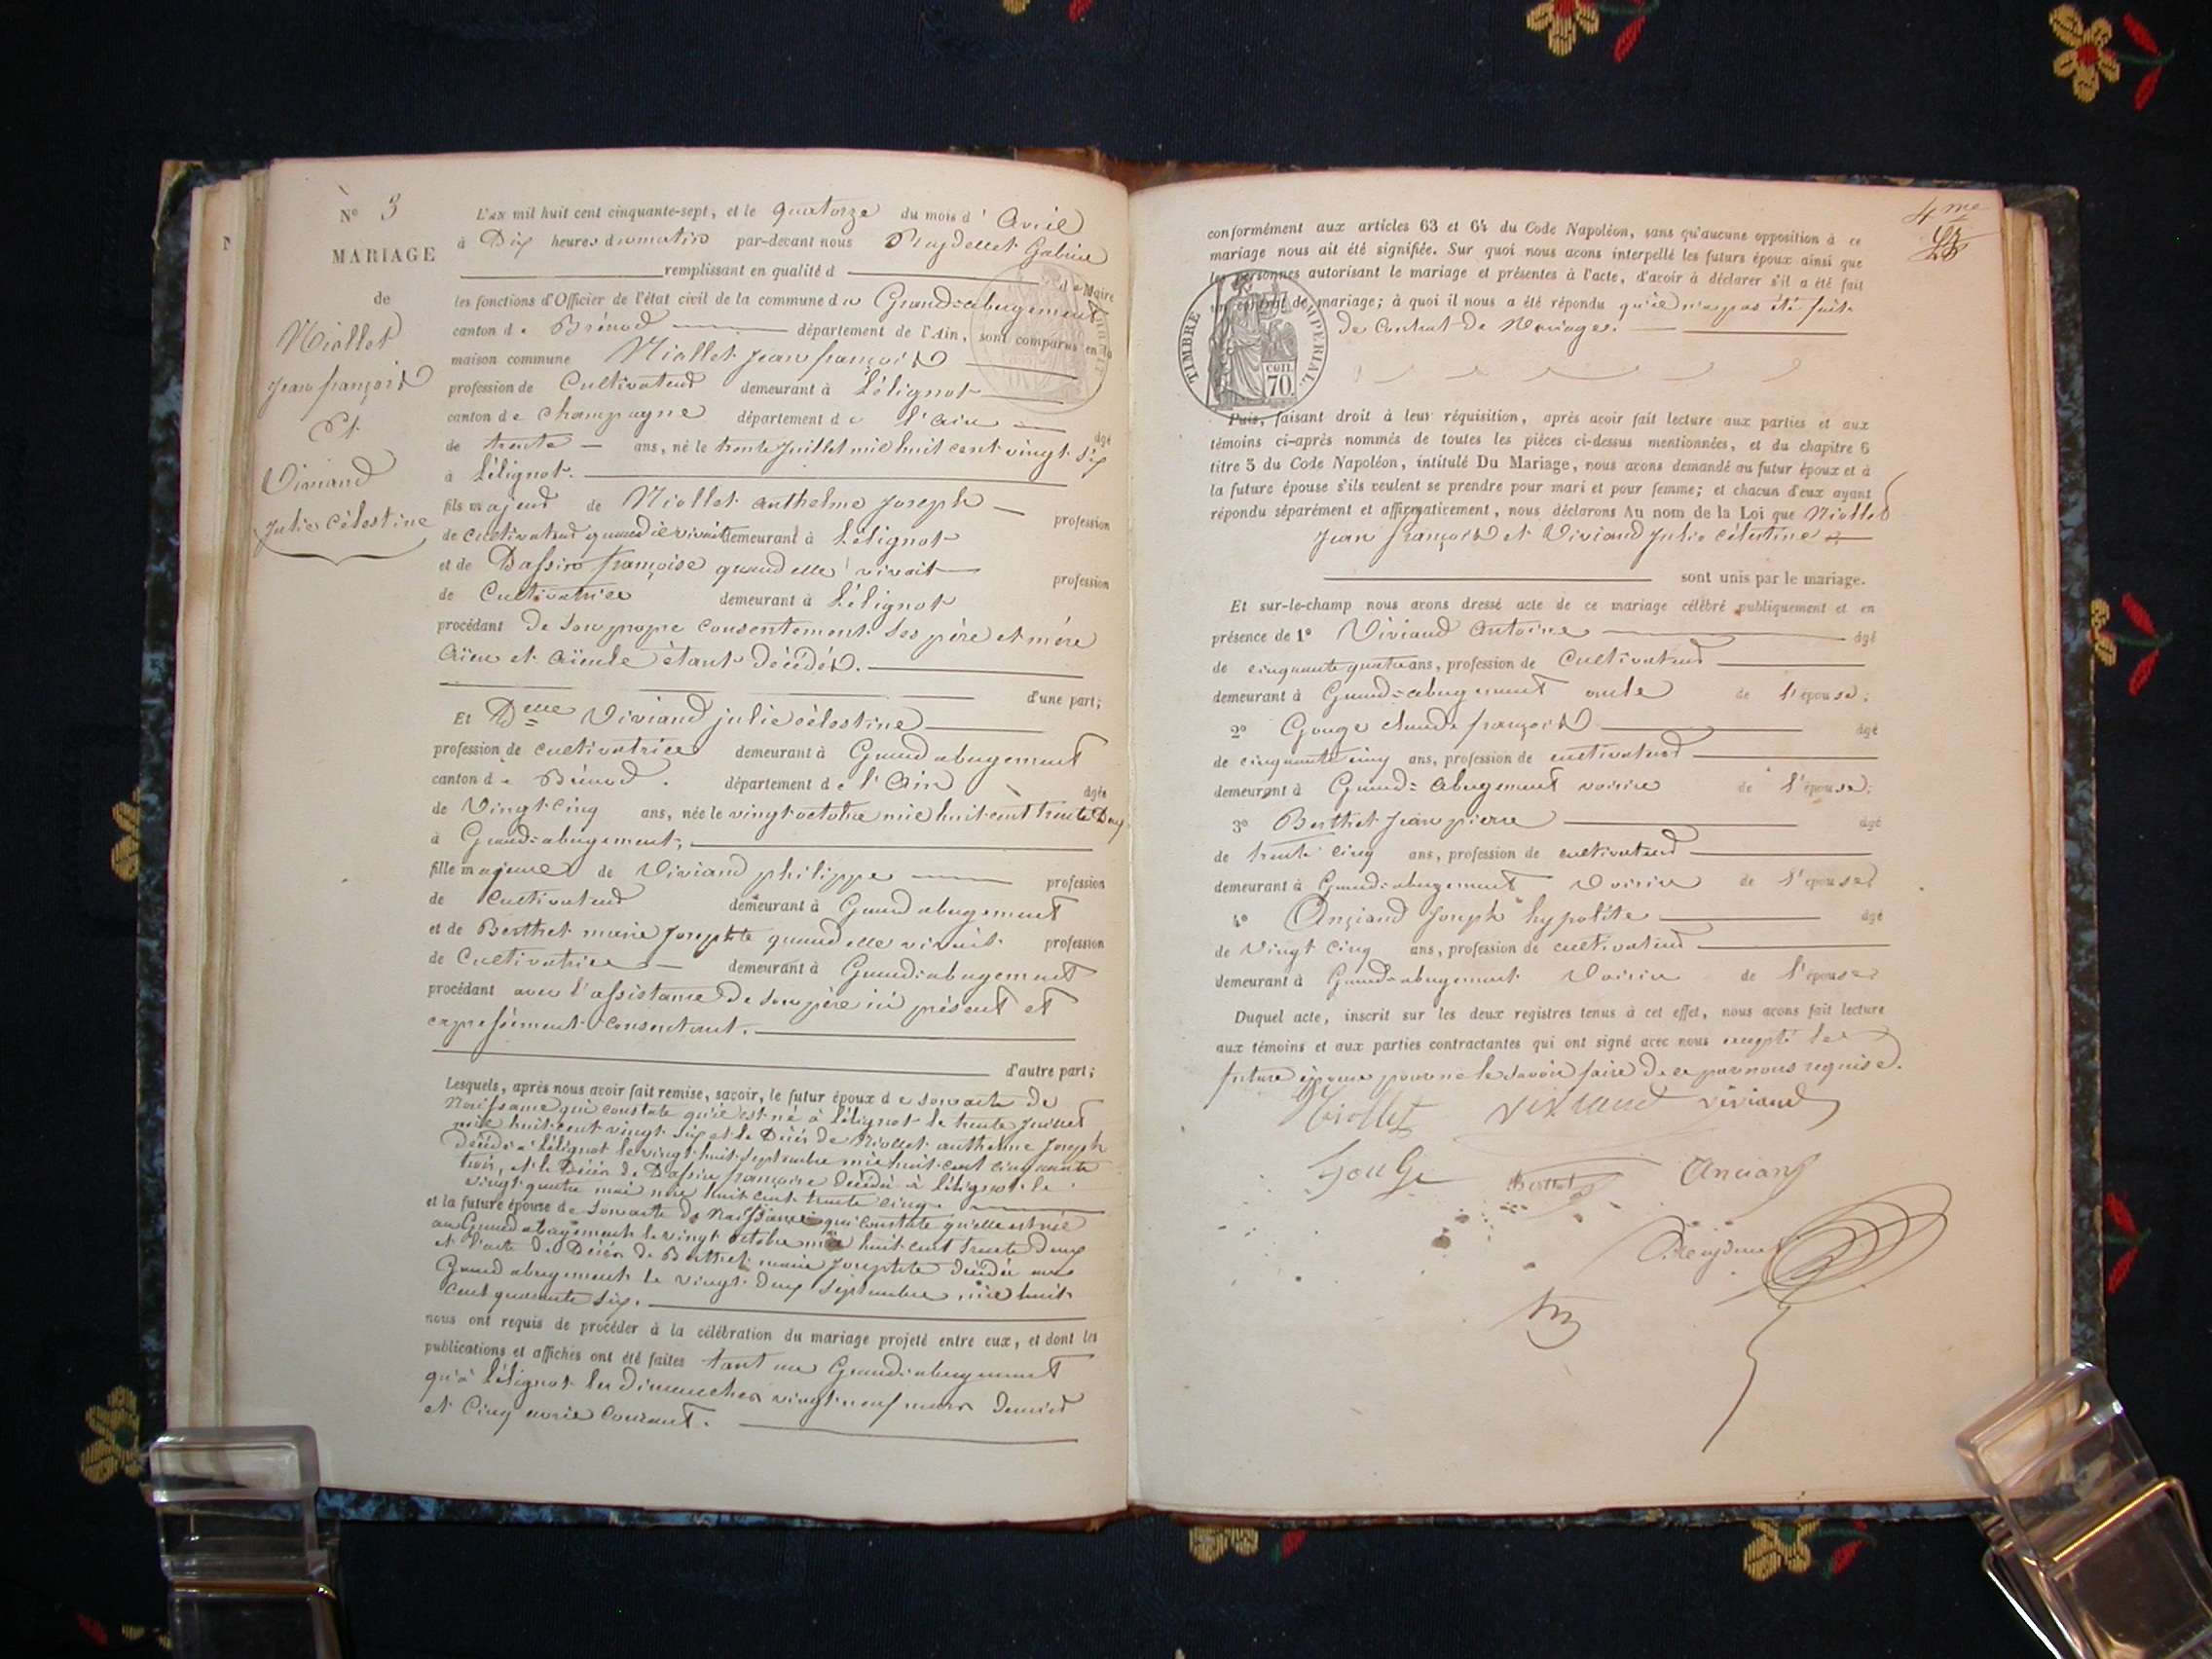 N° 3
MARIAGE
de
Niollet
Jean françois
Et
Viviand
Julie Célestine
L'an mil huit cent cinquante-sept, et le quatorze du mois d'Avril
à Dix heures du matin par-devant nous Reydellet Gabriel
remplissant en qualité d de Maire
les fonctions d'Officier de l'état civil de la commune du Grand=abergement
canton de Brénod département de l'Ain, sont comparus en la
maison commune Niollet Jean françois
profession de Cultivateur demeurant à Lélignot
canton de Champagne département de l'ain âgé
de trente ans, né le trente Juillet mil huit cent vingt six
à Lélignot.
fils majeur de Niollet anthelme Joseph profession
de cultivateur quand il vivait demeurant à Lélignot
et de Dassin françoise quand elle vivait profession
de Cultivatrice demeurant à Lélignot
procédant de son propre consentement ses père et mère
aïeu et aïeule étant décédés.
d'une part;
Et Delle Viviand julie célestine
profession de cultivatrice demeurant à Grand abergement
canton de Brénod. département de l'Ain âgée
de Vingt cinq ans, née le vingt octobre mil huit cent trente Deux
à Grand=abergement;
fille majeure de Viviand philippe profession
de cultivateur demeurant à Grand abergement
et de Berthet marie Josephte quand elle vivait profession
de Cultivatrice demeurant à Grand=abergement
procédant avec l'assistance de son père ici présent et
expressément consentant.
d'autre part;
Lesquels, après nous avoir fait remise, savoir, le futur époux de son acte de
Naissance qui constate qu'il est né à Lélignot le trente Juillet
mil huit cent vingt six et le Décès de Niollet anthelme Joseph
décédé à Lélignot le vingt huit septembre mil huit cent cinquante
trois, et le Décès de Dassin françoise décédée à Lélignot le
vingt quatre mai mil huit cent trente cinq.
et la future épouse de son acte de Naissance qui constate qu'elle est née
au Grand abergement le vingt octobre mil huit cent trente deux
et l'acte de Décès de Berthet marie Josephte décédée au
Grand abergement le vingt deux septembre mil huit
cent quarante six.
nous ont requis de procéder à la célébration du mariage projeté entre eux, et dont les
publications et affiches ont été faites tant au Grand=abergement
qu'à Lélignot les dimanches vingt neuf mars dernier
et Cinq avril Courant.
4me
conformément aux articles 63 et 64 du Code Napoléon, sans qu'aucune opposition à ce
mariage nous ait été signifiée. Sur quoi nous avons interpellé les futurs époux ainsi que
les personnes autorisant le mariage et présentes à l'acte, d'avoir à déclarer s'il a été fait
un contrat de mariage; à quoi il nous a été répondu qu'il n'a pas été fait
de Contrat de Mariage.
TIMBRE IMPERIAL.
CEN.
70.
Puis, faisant droit à leur réquisition, après avoir fait lecture aux parties et aux
témoins ci-après nommés de toutes les pièces ci-dessus mentionnées, et du chapitre 6
titre 5 du Code Napoléon, intitulé Du Mariage, nous avons demandé au futur époux et à
la future épouse s'ils veulent se prendre pour mari et pour femme; et chacun d'eux ayant
répondu séparément et affirmativement, nous déclarons Au nom de la Loi que Niollet
Jean françois et Viviand Julie célestine
sont unis par le mariage.
Et sur-le-champ nous avons dressé acte de ce mariage célébré publiquement et en
présence de 1° Viviand Antoine âgé
de cinquante quatre ans, profession de Cultivateur
demeurant à Grand=abergement oncle de l'épouse;
2° Gouge claude françois âgé
de cinquante cinq ans, profession de cultivateur
demeurant à Grand=abergement voisin de l'épouse;
3° Berthet Jean pierre âgé
de trente cinq ans, profession de cultivateur
demeurant à Grand=abergement Voisin de l'épouse;
4° Anciand Joseph hypolite âgé
de Vingt Cinq ans, profession de cultivateur
demeurant à Grand=abergement Voisin de l'épouse;
Duquel acte, inscrit sur les deux registres tenus à cet effet, nous avons fait lecture
aux témoins et aux parties contractantes qui ont signé avec nous excepté la
future épouse pour ne le savoir faire de ce par nous requise.
Niollet viviand viviand
Gouge Berthet Anciand
Reydellet